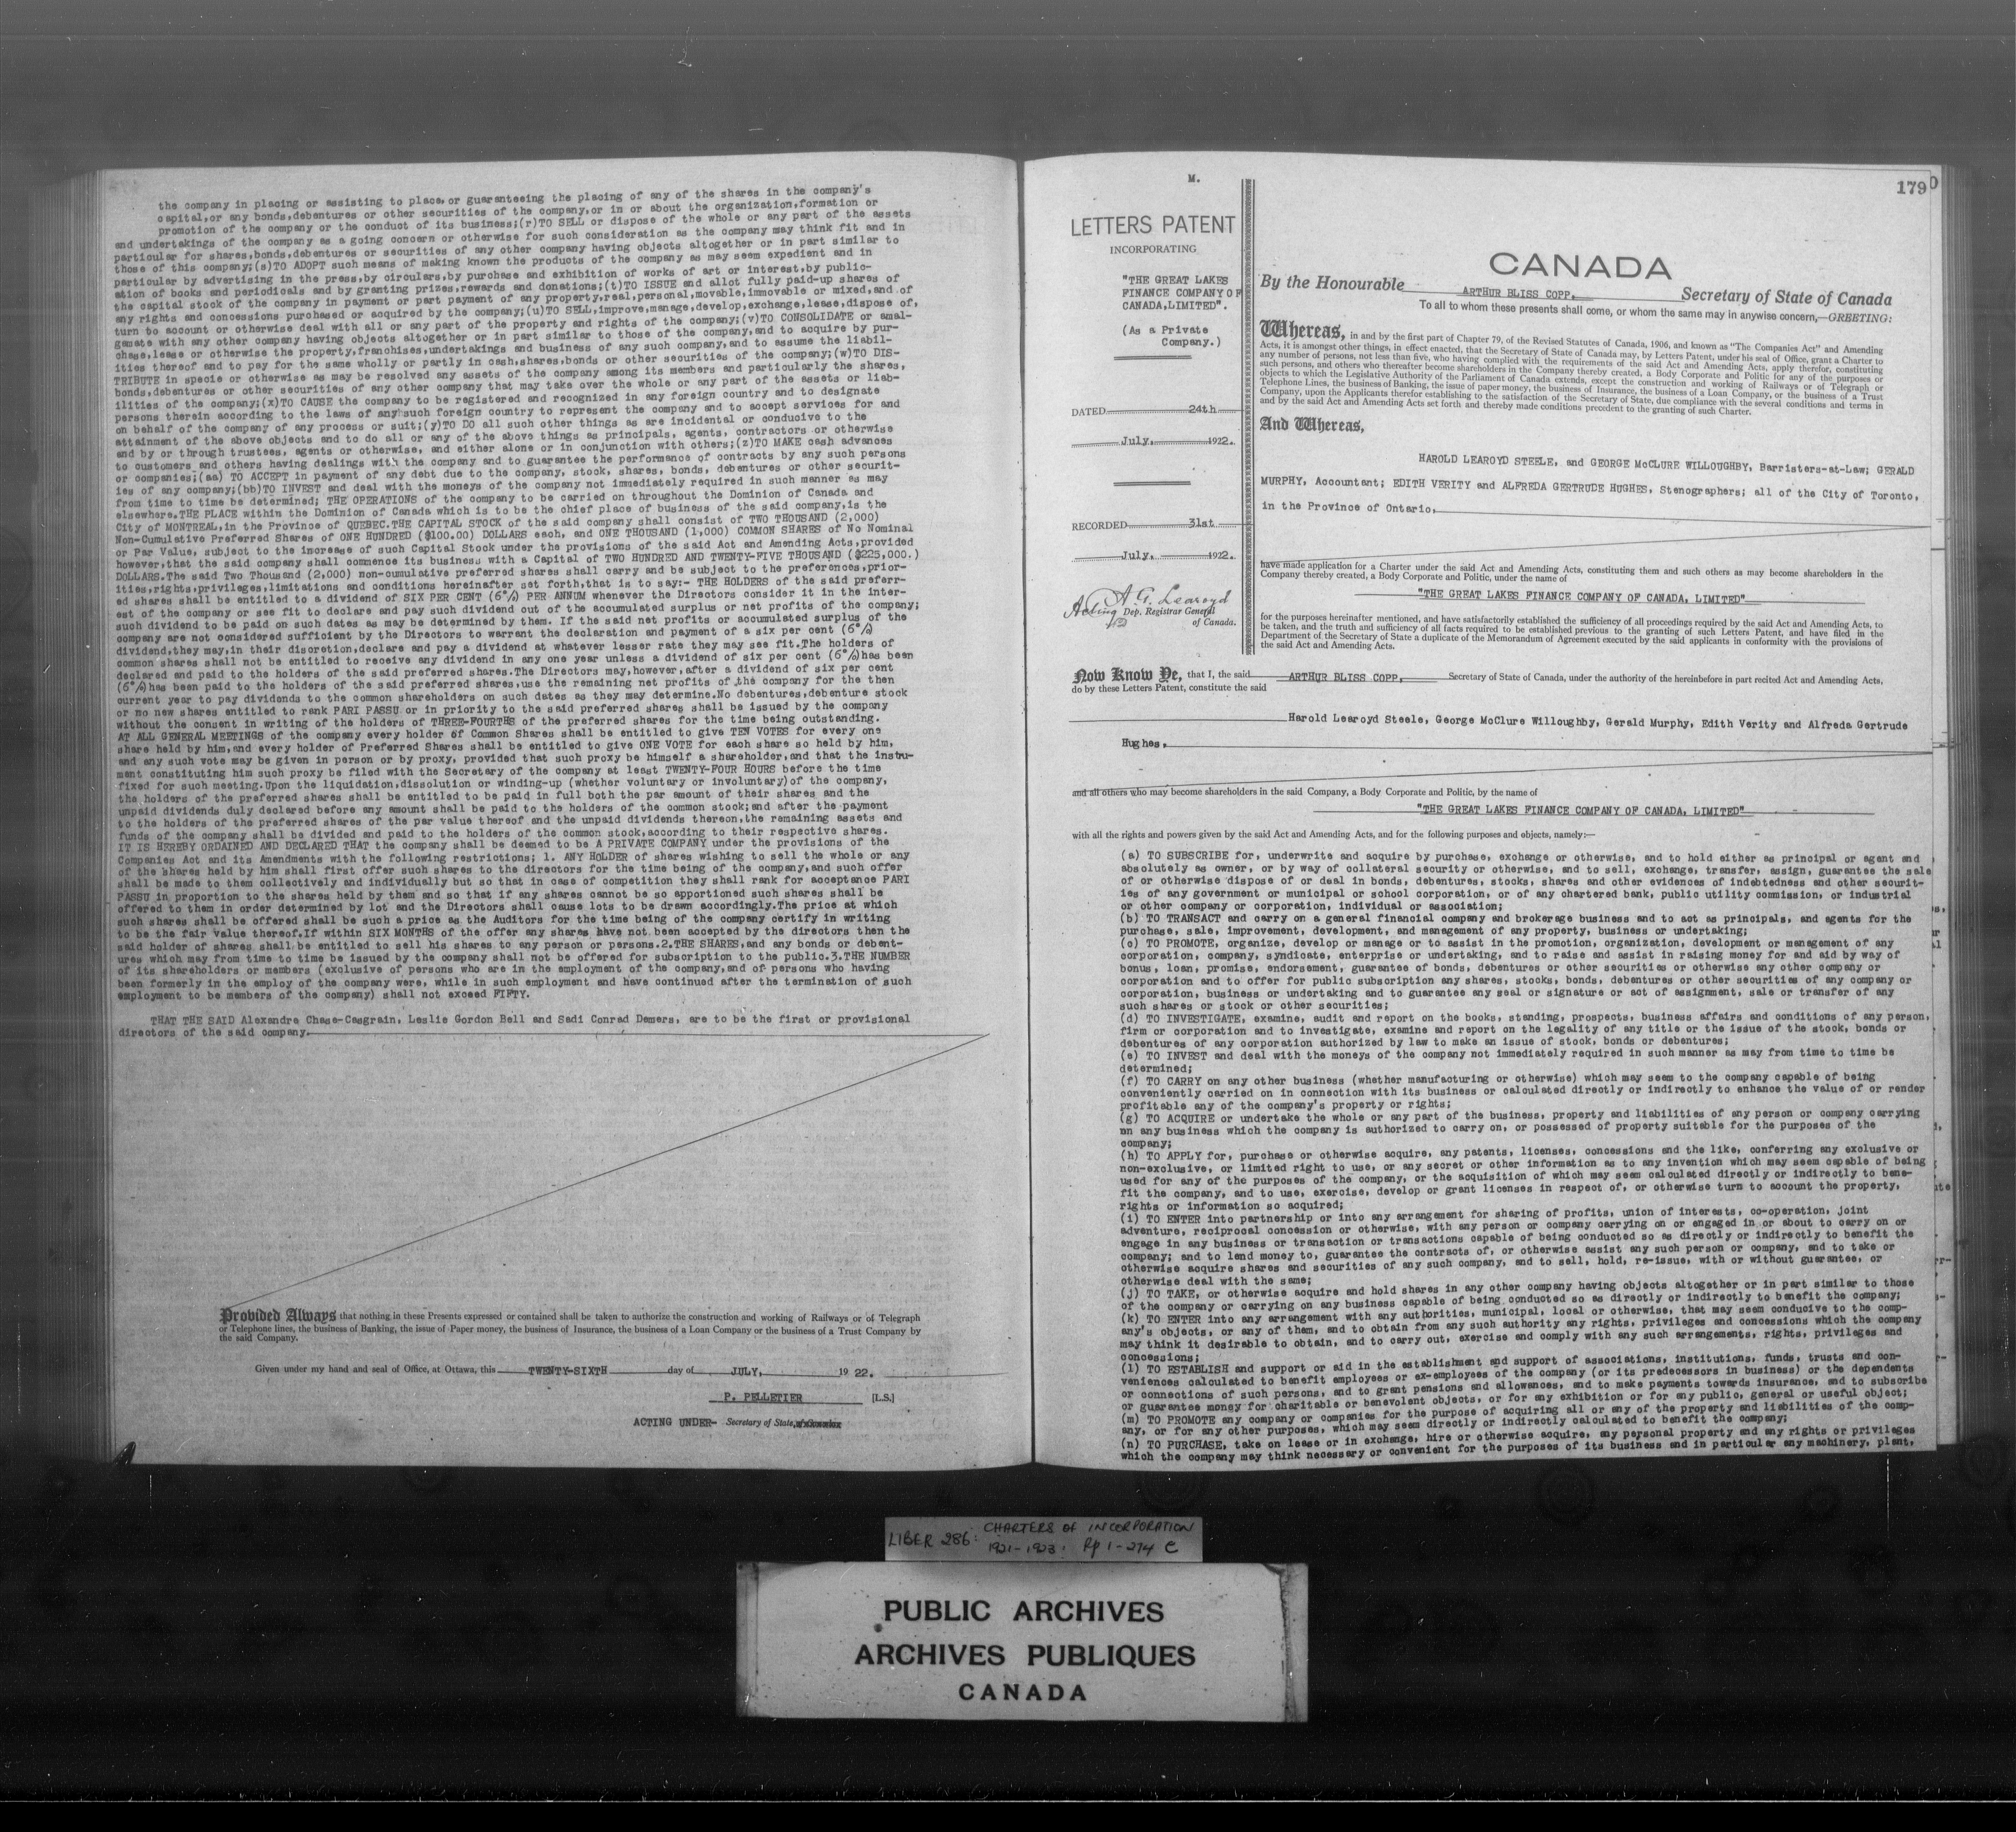 the company in placing or assisting to place, or guaranteeing the placing of any of the shares in the company's
capital,or any bonds,debentures or other securities of the company,or in or about the organization,formation or
promotion of the company or the conduct of its business;(r)TO SELL or dispose of the whole or any part of the assets
and undertakings of the company as a going concern or otherwise for such consideration as the company may think fit and in
particular for shares,bonds,debentures or securities of any other company having objects altogether or in part similar to
those of this company;(s)TO ADOPT such means of making known the products of the company as may seem expedient and in
particular by advertising in the press,by circulars,by purchase and exhibition of works of art or interest,by public-
ation of books and periodicals and by granting prizes,rewards and donations;(t)TO ISSUE and allot fully paid-up shares of
the capital stock of the company in payment or part payment of any property,real,personal,movable,immovable or mixed,and of
any rights and concessions purchased or acquired by the company;(u)TO SELL,improve,manage,develop,exchange,lease,dispose of,
turn to account or otherwise deal with all or any part of the property and rights of the company;(v)TO CONSOLIDATE or amal-
gamate with any other company having objects altogether or in part similar to those of the company,and to acquire by pur-
chase,lease or otherwise the property,franchises,undertakings and business of any such company,and to assume the liabil-
ities thereof and to pay for the same wholly or partly in cash,shares,bonds or other securities of the company;(w)TO DIS-
TRIBUTE in specie or otherwise as may be resolved any assets of the company among its members and particularly the shares,
bonds,debentures or other securities of any other company that may take over the whole or any part of the assets or liab-
ilities of the company;(x)TO CAUSE the company to be registered and recognized in any foreign country and to designate
persons therein according to the laws of any such foreign country to represent the company and to accept services for and
on behalf of the company of any process or suit;(y)TO DO all such other things as are incidental or conducive to the
attainment of the above objects and to do all or any of the above things as principals, agents, contractors or otherwise
and by or through trustees, agents or otherwise, and either alone or in conjunction with others;(z)TO MAKE cash advances
to customers and others having dealings with the company and to guarantee the performance of contracts by any such persons
or companies;(aa) TO ACCEPT in payment of any debt due to the company, stock, shares, bonds, debentures or other securit-
ies of any company;(bb)TO INVEST and deal with the moneys of the company not immediately required in such manner as may
from time to time be determined; THE OPERATIONS of the company to be carried on throughout the Dominion of Canada and
elsewhere.THE PLACE within the Dominion of Canada which is to be the chief place of business of the said company,is the
City of MONTREAL,in the Province of QUEBEC.THE CAPITAL STOCK of the said company shall consist of TWO THOUSAND (2,000)
Non-Cumulative Preferred Shares of ONE HUNDRED ($100.00) DOLLARS each, and ONE THOUSAND (1,000) COMMON SHARES of No Nominal
or Par Value, subject to the increase of such Capital Stock under the provisions of the said Act and Amending Acts,provided
however,that the said company shall commence its business with a Capital of TWO HUNDRED AND TWENTY-FIVE THOUSAND ($225,000.)
DOLLARS.The said Two Thousand (2,000) non-cumulative preferred shares shall carry and be subject to the preferences,prior-
ities,rights,privileges,limitations and conditions hereinafter set forth,that is to say:- THE HOLDERS of the said preferr-
ed shares shall be entitled to a dividend of SIX PER CENT (6%) PER ANNUM whenever the Directors consider it in the inter-
est of the company or see fit to declare and pay such dividend out of the accumulated surplus or net profits of the company;
such dividend to be paid on such dates as may be determined by them. If the said net profits or accumulated surplus of the
company are not considered sufficient by the Directors to warrant the declaration and payment of a six per cent (6%)
dividend,they may,in their discretion,declare and pay a dividend at whatever lesser rate they may see fit.The holders of
common shares shall not be entitled to receive any dividend in any one year unless a dividend of six per cent (6%)has been
declared and paid to the holders of the said preferred shares.The Directors may,however,after a dividend of six per cent
(6%)has been paid to the holders of the said preferred shares,use the remaining net profits of the company for the then
current year to pay dividends to the common shareholders on such dates as they may determine.No debentures,debenture stock
or no new shares entitled to rank PARI PASSU or in priority to the said preferred shares shall be issued by the company
without the consent in writing of the holders of THREE-FOURTHS of the preferred shares for the time being outstanding.
AT ALL GENERAL MEETINGS of the company every holder of Common Shares shall be entitled to give TEN VOTES for every one
share held by him,and every holder of Preferred Shares shall be entitled to give ONE VOTE for each share so held by him,
and any such vote may be given in person or by proxy, provided that such proxy be himself a shareholder,and that the instru-
ment constituting him such proxy be filed with the Secretary of the company at least TWENTY-FOUR HOURS before the time
fixed for such meeting.Upon the liquidation,dissolution or winding-up (whether voluntary or involuntary)of the company,
the holders of the preferred shares shall be entitled to be paid in full both the par amount of their shares and the
unpaid dividends duly declared before any amount shall be paid to the holders of the common stock;and after the payment
to the holders of the preferred shares of the par value thereof and the unpaid dividends thereon,the remaining assets and
funds of the company shall be divided and paid to the holders of the common stock,according to their respective shares.
IT IS HEREBY ORDAINED AND DECLARED THAT the company shall be deemed to be A PRIVATE COMPANY under the provisions of the
Companies Act and its Amendments with the following restrictions; 1. ANY HOLDER of shares wishing to sell the whole or any
of the shares held by him shall first offer such shares to the directors for the time being of the company,and such offer
shall be made to them collectively and individually but so that in case of competition they shall rank for acceptance PARI
PASSU in proportion to the shares held by them and so that if any shares cannot be so apportioned such shares shall be
offered to them in order determined by lot and the Directors shall cause lots to be drawn accordingly.The price at which
such shares shall be offered shall be such a price as the Auditors for the time being of the company certify in writing
to be the fair value thereof.If within SIX MONTHS of the offer any shares have not been accepted by the directors then the
said holder of shares shall be entitled to sell his shares to any person or persons.2.THE SHARES,and any bonds or debent-
ures which may from time to time be issued by the company shall not be offered for subscription to the public.3.THE NUMBER
of its shareholders or members (exclusive of persons who are in the employment of the company,and of persons who having
been formerly in the employ of the company were, while in such employment and have continued after the termination of such
employment to be members of the company) shall not exceed FIFTY.
THAT THE SAID Alexandre Chase-Casgrain, Leslie Gordon Bell and Sadi Conrad Demers, are to be the first or provisional
directors of the said company.
Provided Always that nothing in these Presents expressed or contained shall be taken to authorize the construction and working of Railways or of Telegraph
or Telephone lines, the business of Banking, the issue of Paper money, the business of Insurance, the business of a Loan Company or the business of a Trust Company by
the said Company.
Given under my hand and seal of Office, at Ottawa, this TWENTY-SIXTH day of JULY, 19 22.
P. PELLETIER [L.S.]
ACTING UNDER- Secretary of State,
M.
179
LETTERS PATENT
INCORPORATING
"THE GREAT LAKES
FINANCE COMPANY OF
CANADA,LIMITED".
(As a Private
Company.)
DATED 24th
July, 1922.
RECORDED 31st
July, 1922.
A. G. Learoyd
Acting Dep. Registrar General
of Canada.
CANADA
By the Honourable ARTHUR BLISS COPP, Secretary of State of Canada
To all to whom these presents shall come, or whom the same may in anywise concern,—GREETING:
Whereas, in and by the first part of Chapter 79, of the Revised Statutes of Canada, 1906, and known as "The Companies Act" and Amending
Acts, it is amongst other things, in effect enacted, that the Secretary of State of Canada may, by Letters Patent, under his seal of Office, grant a Charter to
any number of persons, not less than five, who having complied with the requirements of the said Act and Amending Acts, apply therefor, constituting
such persons, and others who thereafter become shareholders in the Company thereby created, a Body Corporate and Politic for any of the purposes or
objects to which the Legislative Authority of the Parliament of Canada extends, except the construction and working of Railways or of Telegraph or
Telephone Lines, the business of Banking, the issue of paper money, the business of Insurance, the business of a Loan Company, or the business of a Trust
Company, upon the Applicants therefor establishing to the satisfaction of the Secretary of State, due compliance with the several conditions and terms in
and by the said Act and Amending Acts set forth and thereby made conditions precedent to the granting of such Charter.
And Whereas,
HAROLD LEAROYD STEELE, and GEORGE McCLURE WILLOUGHBY, Barristers-at-Law; GERALD
MURPHY, Accountant; EDITH VERITY and ALFREDA GERTRUDE HUGHES, Stenographers; all of the City of Toronto,
in the Province of Ontario,
have made application for a Charter under the said Act and Amending Acts, constituting them and such others as may become shareholders in the
Company thereby created, a Body Corporate and Politic, under the name of
"THE GREAT LAKES FINANCE COMPANY OF CANADA, LIMITED"
for the purposes hereinafter mentioned, and have satisfactorily established the sufficiency of all proceedings required by the said Act and Amending Acts, to
be taken, and the truth and sufficiency of all facts required to be established previous to the granting of such Letters Patent, and have filed in the
Department of the Secretary of State a duplicate of the Memorandum of Agreement executed by the said applicants in conformity with the provisions of
the said Act and Amending Acts.
Now Know Ye, that I, the said ARTHUR BLISS COPP, Secretary of State of Canada, under the authority of the hereinbefore in part recited Act and Amending Acts,
do by these Letters Patent, constitute the said
Harold Learoyd Steele, George McClure Willoughby, Gerald Murphy, Edith Verity and Alfreda Gertrude
Hughes,
and all others who may become shareholders in the said Company, a Body Corporate and Politic, by the name of
"THE GREAT LAKES FINANCE COMPANY OF CANADA, LIMITED"
with all the rights and powers given by the said Act and Amending Acts, and for the following purposes and objects, namely:—
(a) TO SUBSCRIBE for, underwrite and acquire by purchase, exchange or otherwise, and to hold either as principal or agent and
absolutely as owner, or by way of collateral security or otherwise, and to sell, exchange, transfer, assign, guarantee the sale
of or otherwise dispose of or deal in bonds, debentures, stocks, shares and other evidences of indebtedness and other securit-
ies of any government or municipal or school corporation, or of any chartered bank, public utility commission, or industrial
or other company or corporation, individual or association;
(b) TO TRANSACT and carry on a general financial company and brokerage business and to act as principals, and agents for the
purchase, sale, improvement, development, and management of any property, business or undertaking;
(c) TO PROMOTE, organize, develop or manage or to assist in the promotion, organization, development or management of any
corporation, company, syndicate, enterprise or undertaking, and to raise and assist in raising money for and aid by way of
bonus, loan, promise, endorsement, guarantee of bonds, debentures or other securities or otherwise any other company or
corporation and to offer for public subscription any shares, stocks, bonds, debentures or other securities of any company or
corporation, business or undertaking and to guarantee any seal or signature or act of assignment, sale or transfer of any
such shares or stock or other securities;
(d) TO INVESTIGATE, examine, audit and report on the books, standing, prospects, business affairs and conditions of any person,
firm or corporation and to investigate, examine and report on the legality of any title or the issue of the stock, bonds or
debentures of any corporation authorized by law to make an issue of stock, bonds or debentures;
(e) TO INVEST and deal with the moneys of the company not immediately required in such manner as may from time to time be
determined;
(f) TO CARRY on any other business (whether manufacturing or otherwise) which may seem to the company capable of being
conveniently carried on in connection with its business or calculated directly or indirectly to enhance the value of or render
profitable any of the company's property or rights;
(g) TO ACQUIRE or undertake the whole or any part of the business, property and liabilities of any person or company carrying
on any business which the company is authorized to carry on, or possessed of property suitable for the purposes of the
company;
(h) TO APPLY for, purchase or otherwise acquire, any patents, licenses, concessions and the like, conferring any exclusive or
non-exclusive, or limited right to use, or any secret or other information as to any invention which may seem capable of being
used for any of the purposes of the company, or the acquisition of which may seem calculated directly or indirectly to bene-
fit the company, and to use, exercise, develop or grant licenses in respect of, or otherwise turn to account the property,
rights or information so acquired;
(i) TO ENTER into partnership or into any arrangement for sharing of profits, union of interests, co-operation, joint
adventure, reciprocal concession or otherwise, with any person or company carrying on or engaged in or about to carry on or
engage in any business or transaction or transactions capable of being conducted so as directly or indirectly to benefit the
company; and to lend money to, guarantee the contracts of, or otherwise assist any such person or company, and to take or
otherwise acquire shares and securities of any such company, and to sell, hold, re-issue, with or without guarantee, or
otherwise deal with the same;
(j) TO TAKE, or otherwise acquire and hold shares in any other company having objects altogether or in part similar to those
of the company or carrying on any business capable of being conducted so as directly or indirectly to benefit the company;
(k) TO ENTER into any arrangement with any authorities, municipal, local or otherwise, that may seem conducive to the comp-
any's objects, or any of them, and to obtain from any such authority any rights, privileges and concessions which the company
may think it desirable to obtain, and to carry out, exercise and comply with any such arrangements, rights, privileges and
concessions;
(l) TO ESTABLISH and support or aid in the establishment and support of associations, institutions, funds, trusts and con-
veniences calculated to benefit employees or ex-employees of the company (or its predecessors in business) or the dependents
or connections of such persons, and to grant pensions and allowances, and to make payments towards insurance, and to subscribe
or guarantee money for charitable or benevolent objects, or for any exhibition or for any public, general or useful object;
(m) TO PROMOTE any company or companies for the purpose of acquiring all or any of the property and liabilities of the comp-
any, or for any other purposes, which may seem directly or indirectly calculated to benefit the company;
(n) TO PURCHASE, take on lease or in exchange, hire or otherwise acquire, any personal property and any rights or privileges
which the company may think necessary or convenient for the purposes of its business and in particular any machinery, plant,
LIBER 286: CHARTERS OF INCORPORATION
1921-1923: Pp 1-274 C
PUBLIC ARCHIVES
ARCHIVES PUBLIQUES
CANADA